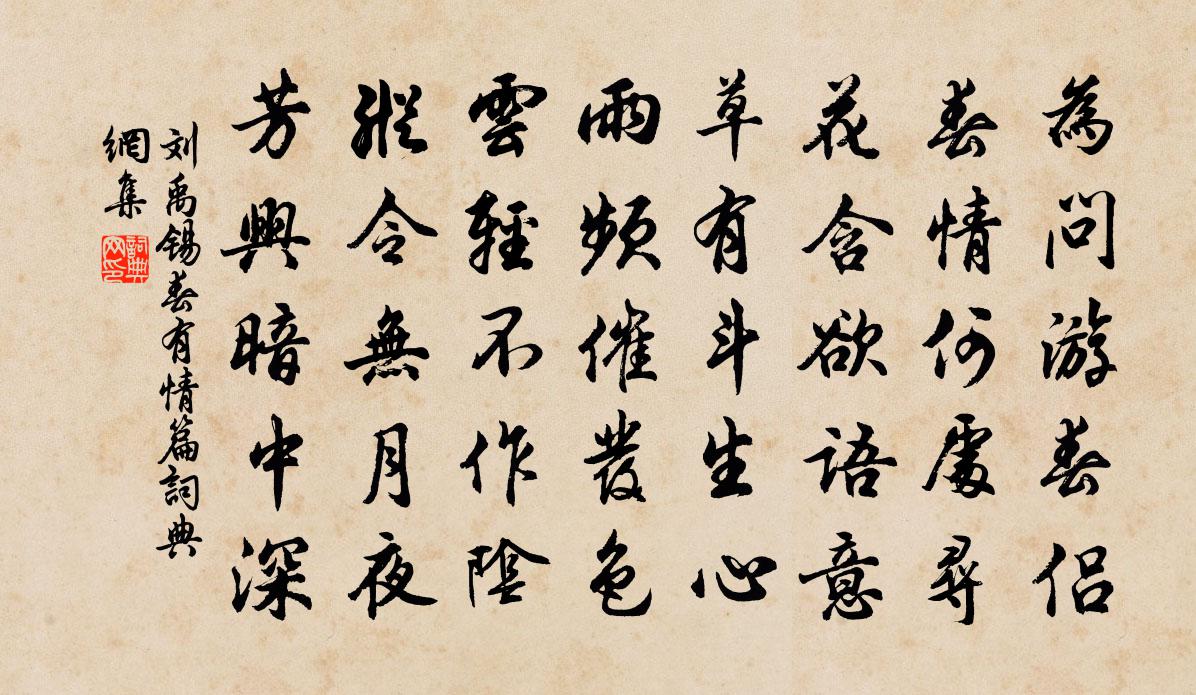 為問游春侶
春情何處尋
花含欲語意
草有斗生心
雨頻催發色
雲輕不作陰
縱令無月夜
芳興暗中深
刘禹锡春有情篇詞典
網集
詞典
网印